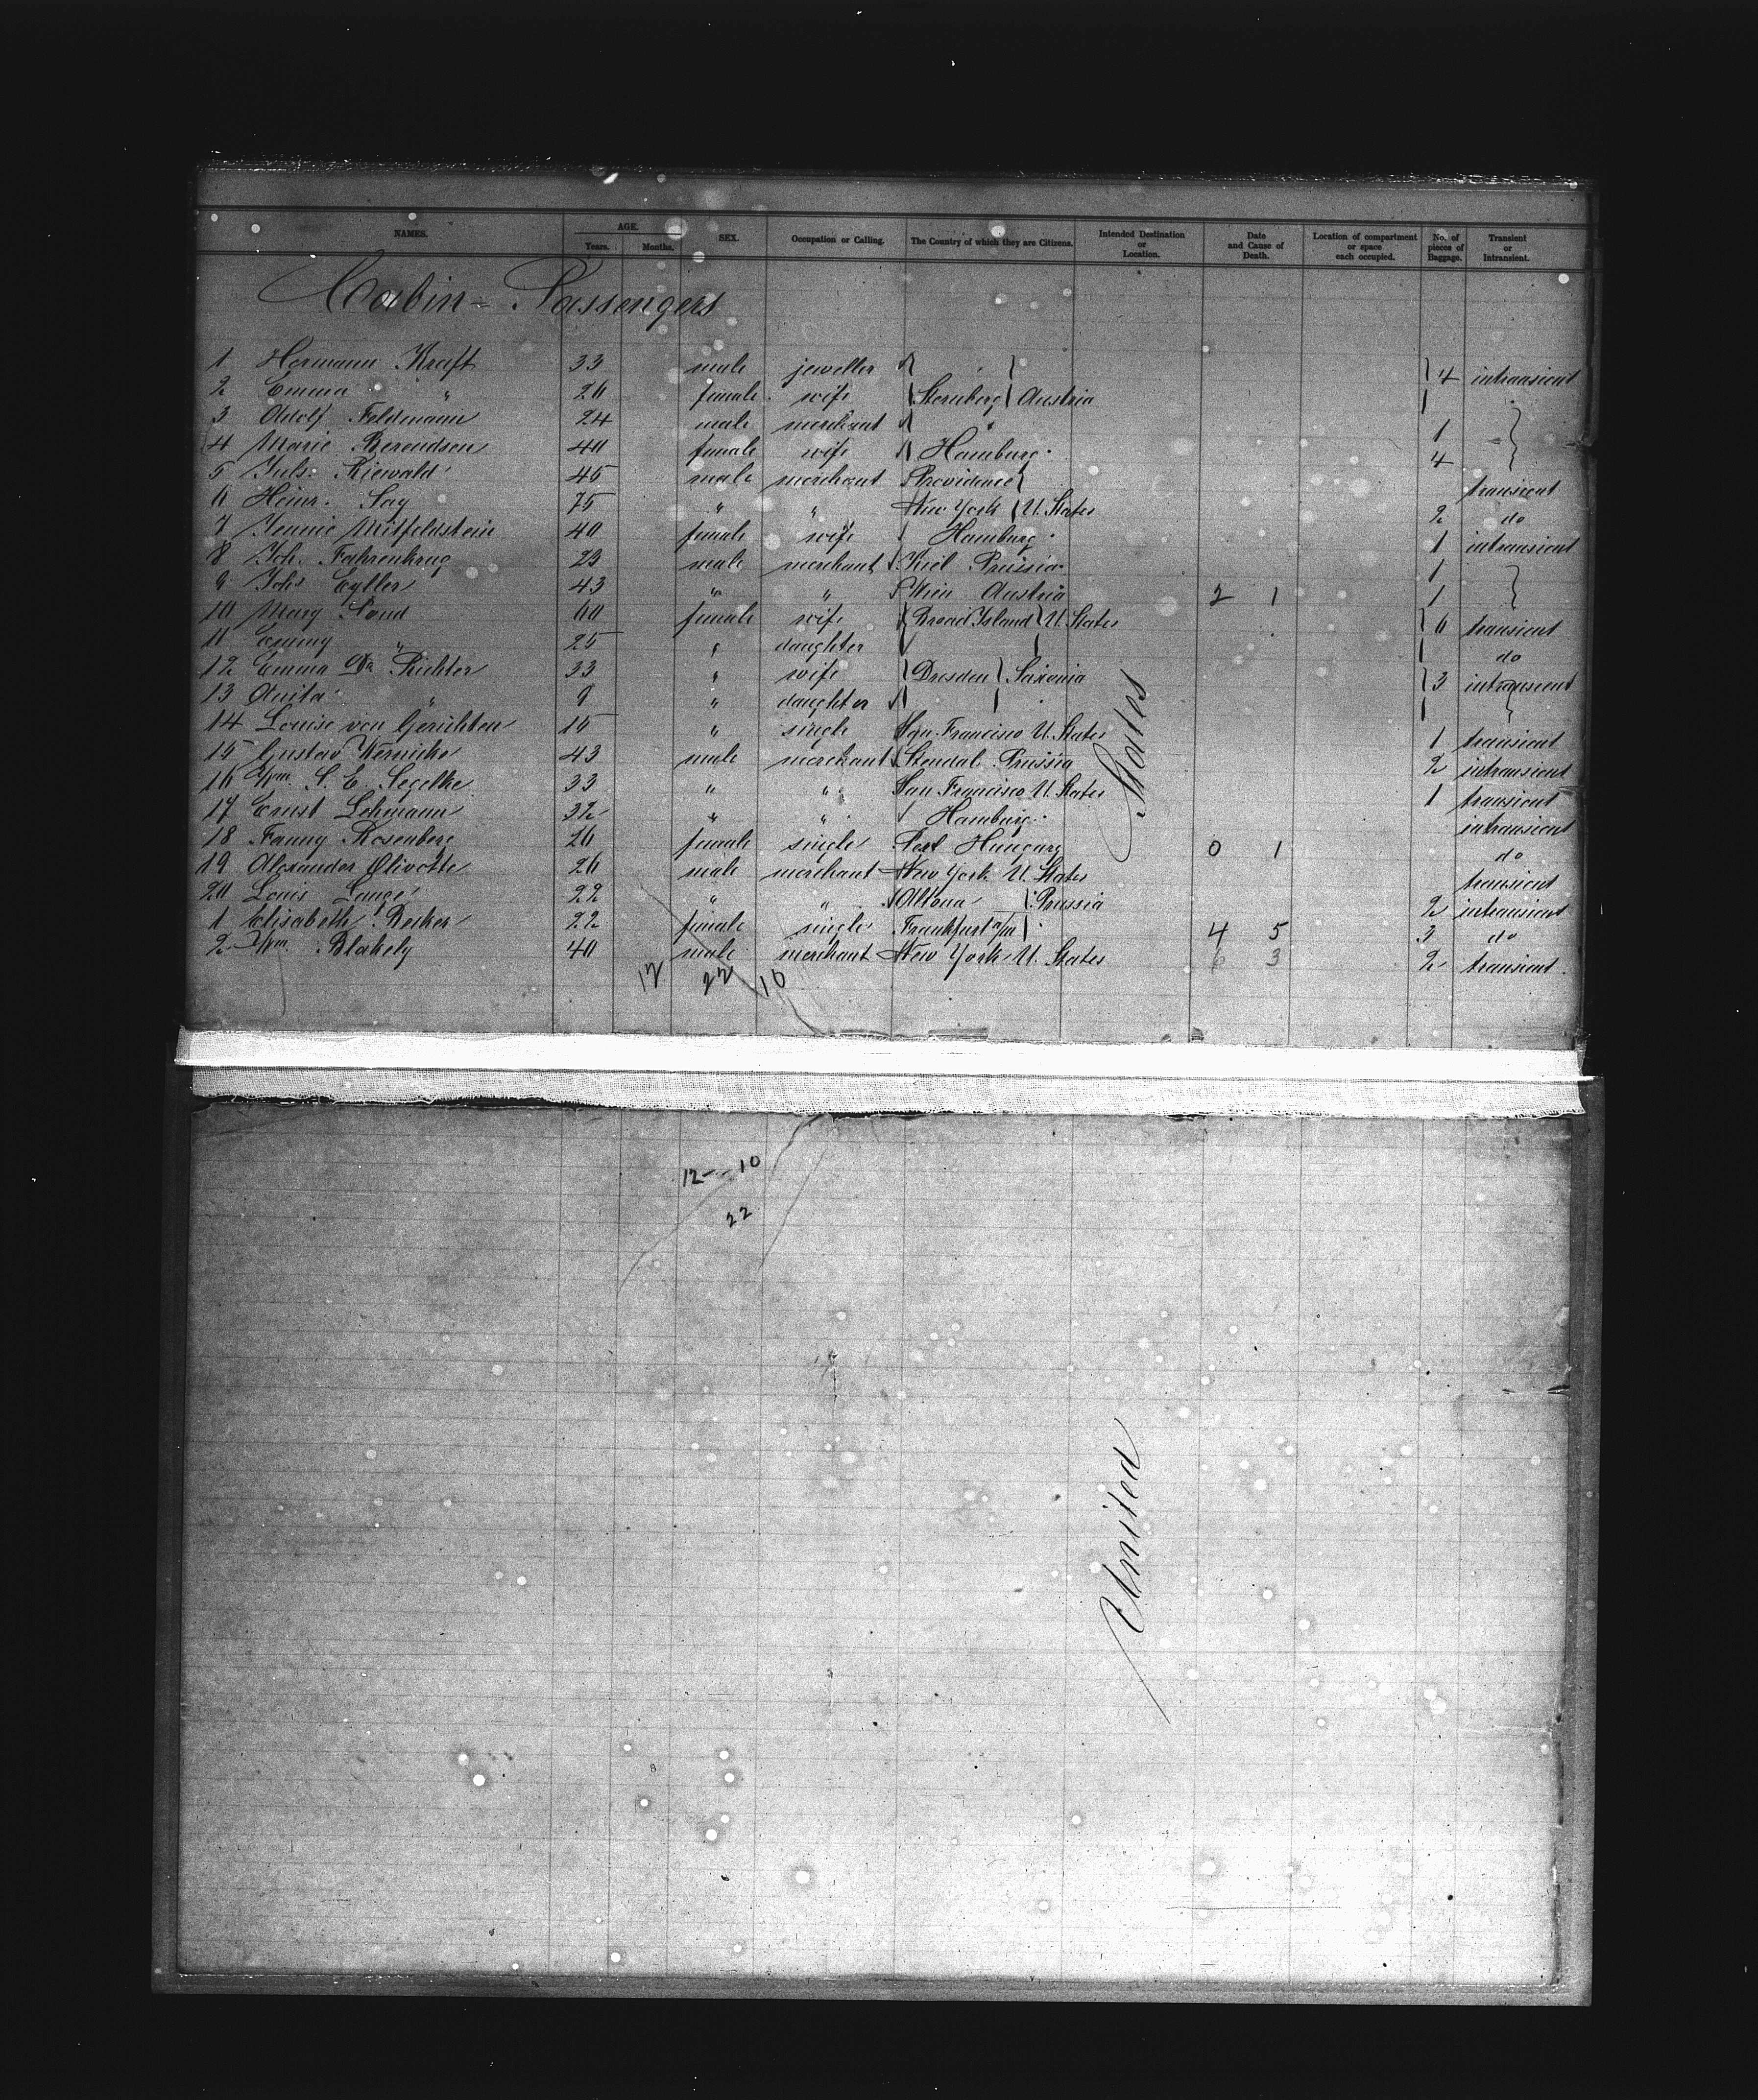 NAMES. AGE. Years. Months. SEX. Occupation or Calling. The Country of which they are Citizens. Intended Destination or Location. Date and Cause of Death. Location of compartment or space each occupied. No. of pieces of Baggage. Transient or Intransient.
Cabin - Passengers
1 Hermann Kraft 33 male jeweller } 4 intransient
2 Emma " 26 female wife Sternberg Austria
3 Adolf Feldmann 24 male merchant " 1
4 Marie Berendsen 40 female wife Hamburg 4
5 Juls. Riewald 45 male merchant Providence transient
6 Heinr. 75 " " New York U. States 2 do
7 Jennie Mitfeldstein 40 female wife Hamburg 1 intransient
8 Joh. Fahrenkrug 23 male merchant Kiel Prussia 1
9 Johs Eyller 43 " " Wien Austria 2 1 1
10 Mary 60 female wife Broad Island U. States 6 transient
11 Emmy " 25 " daughter do
12 Emma Dr. Richter 33 " wife Dresden Saxonia 3 intransient
13 Anita " 9 " daughter
14 Louise von Gerichten 15 " single San Francisco U. States 1 transient
15 Gustav Wernicke 43 male merchant Stendal Prussia 2 intransient
16 Wm. S. E. Segelke 33 " " San Francisco U. States 1 transient
17 Ernst Lehmann 32 " " Hamburg intransient
18 Fanny Rosenberg 26 female single Pest Hungary 0 1 do
19 Alexander Olivotte 26 male merchant New York U. States transient
20 Louis Lange 22 " " Altona Prussia 2 intransient
1 Elisabeth Becker 22 female single Frankfurt a/M 4 5 3 do
2 Wm. Blakely 40 male merchant New York U. States 6 3 2 transient
12 22 10
States
12 - 10
22
United